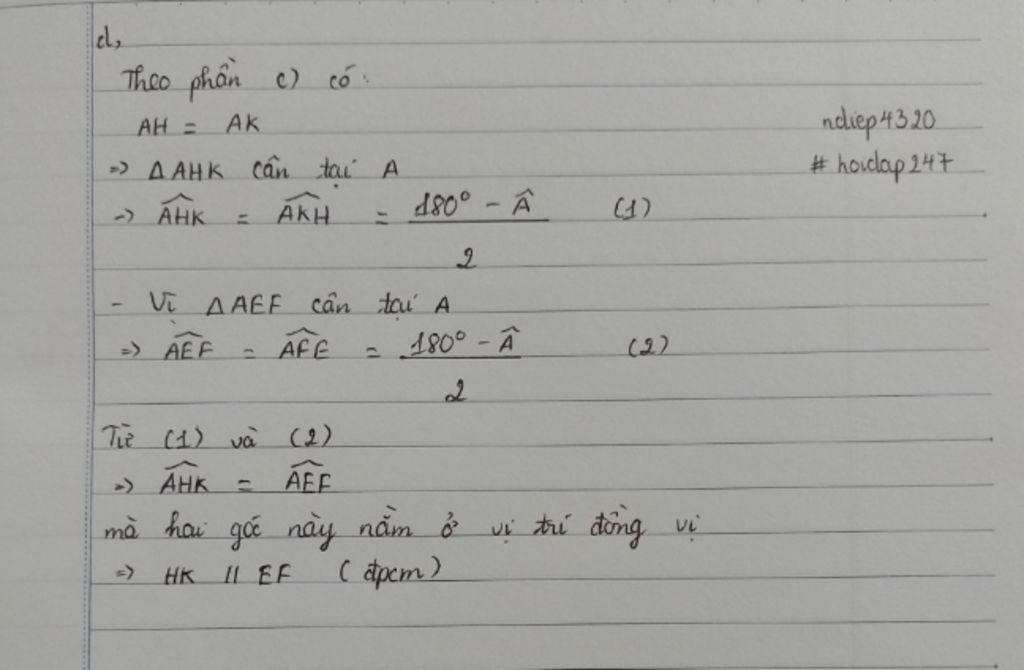 d,
Theo phần c) có:
AH = AK
ndiep4320
=> ΔAHK cân tại A
# hoidap247
-> \widehat{AHK} = \widehat{AKH} = \frac{180° - \hat{A}}{2} (1)
- Vì ΔAEF cân tại A
=> \widehat{AEF} = \widehat{AFE} = \frac{180° - \hat{A}}{2} (2)
Từ (1) và (2)
=> \widehat{AHK} = \widehat{AEF}
mà hai góc này nằm ở vị trí đồng vị
=> HK // EF (đpcm)